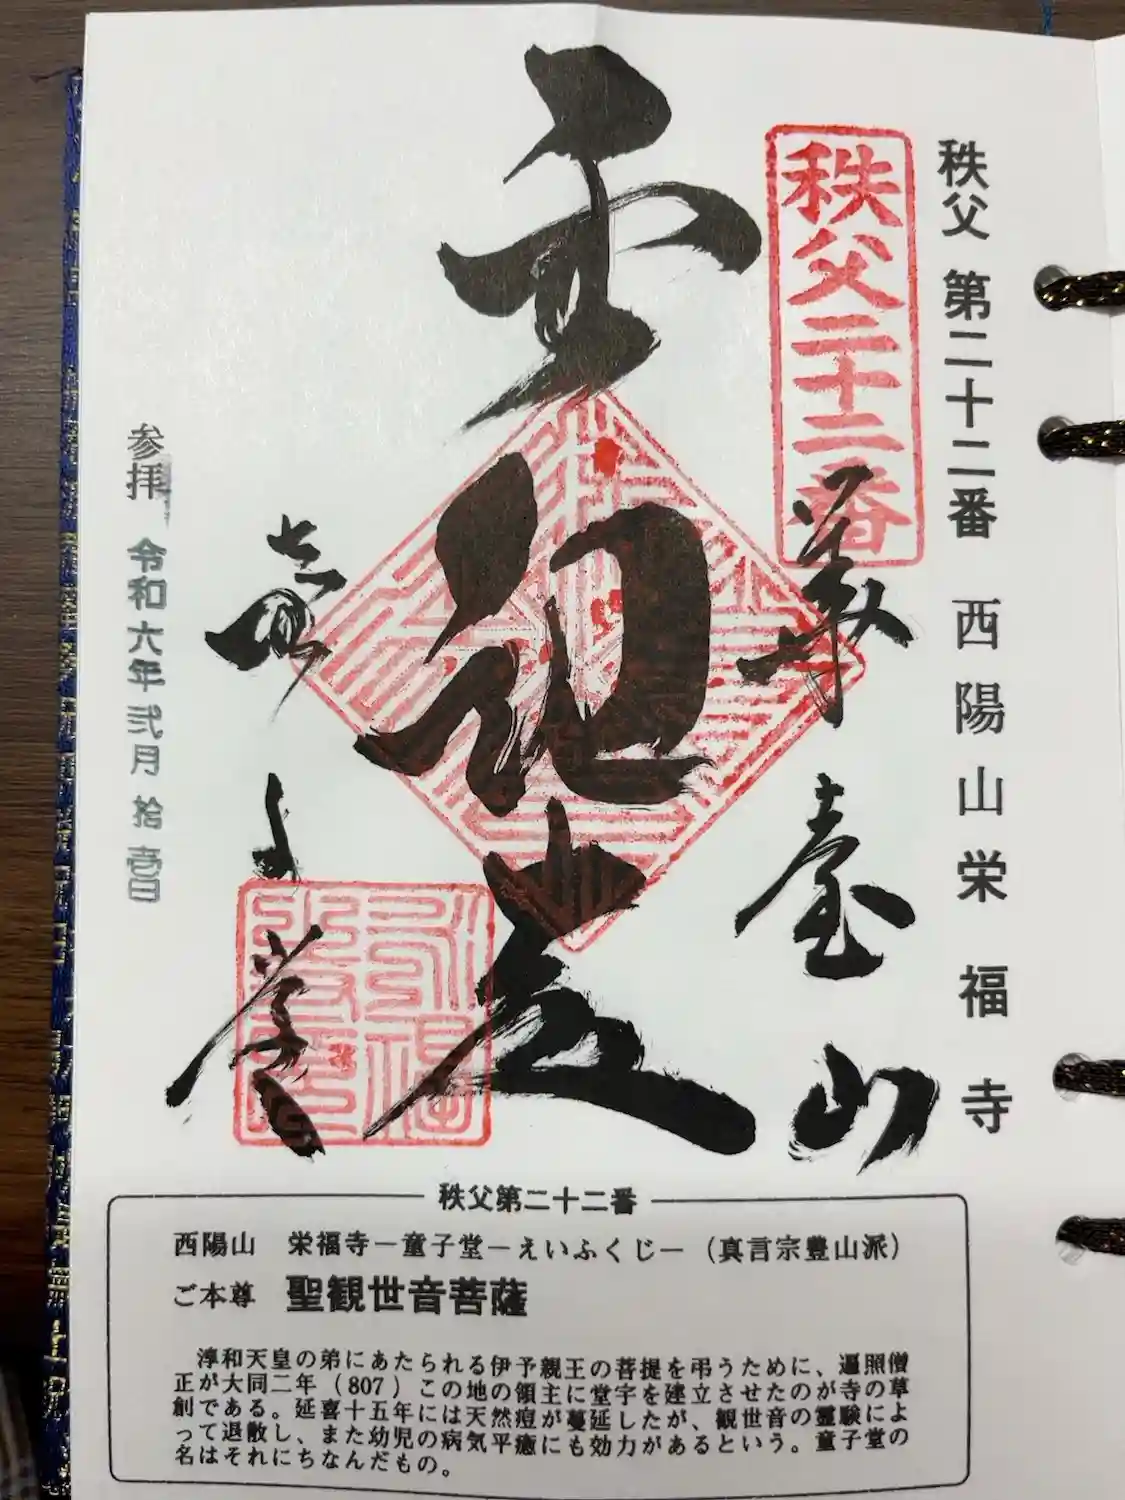 秩父 第二十二番 西陽山栄福寺
秩父二十二番
華台山
童子堂
参拝 令和六年弐月拾壱日
秩父第二十二番
西陽山 栄福寺－童子堂－えいふくじ－（真言宗豊山派）
ご本尊 聖観世音菩薩
淳和天皇の弟にあたられる伊予親王の菩提を弔うために、遍照僧
正が大同二年（807）この地の領主に堂宇を建立させたのが寺の草
創である。延喜十五年には天然痘が蔓延したが、観世音の霊験によ
って退散し、また幼児の病気平癒にも効力があるという。童子堂の
名はそれにちなんだもの。